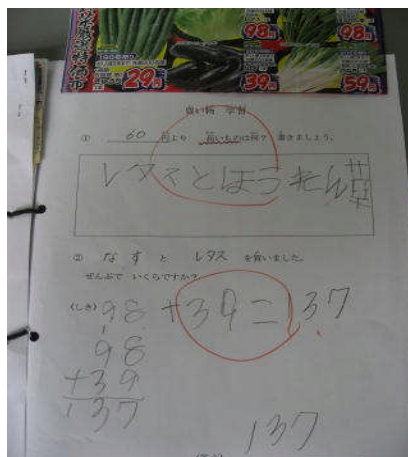 98円
98円
29円
39円
59円
買い物 学習
① 60 円より 高いものは何? 書きましょう。
レタスとほうれん草
② なす と レタス を買いました。
ぜんぶで いくらですか?
(しき) 98 + 39 = 137
98
+39
137
137